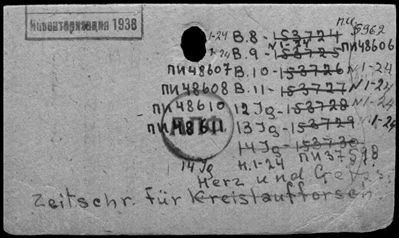 Инвентаризация 1938
1-24 B. 8 - 153724
B. 9 - 153725 ПИ48606
ПИ48607 B. 10 - 153726 N 1-24
ПИ48608 B. 11 - 153727 N 1-24
ПИ48610 12 Jg - 153728 N 1-24
ПИ48611 13 Jg - 153729 N 1-24
14 Jg - 153730
14 Jg N. 1-24 ПИ37598
Herz und
Zeitschr. für Kreislaufforsch.